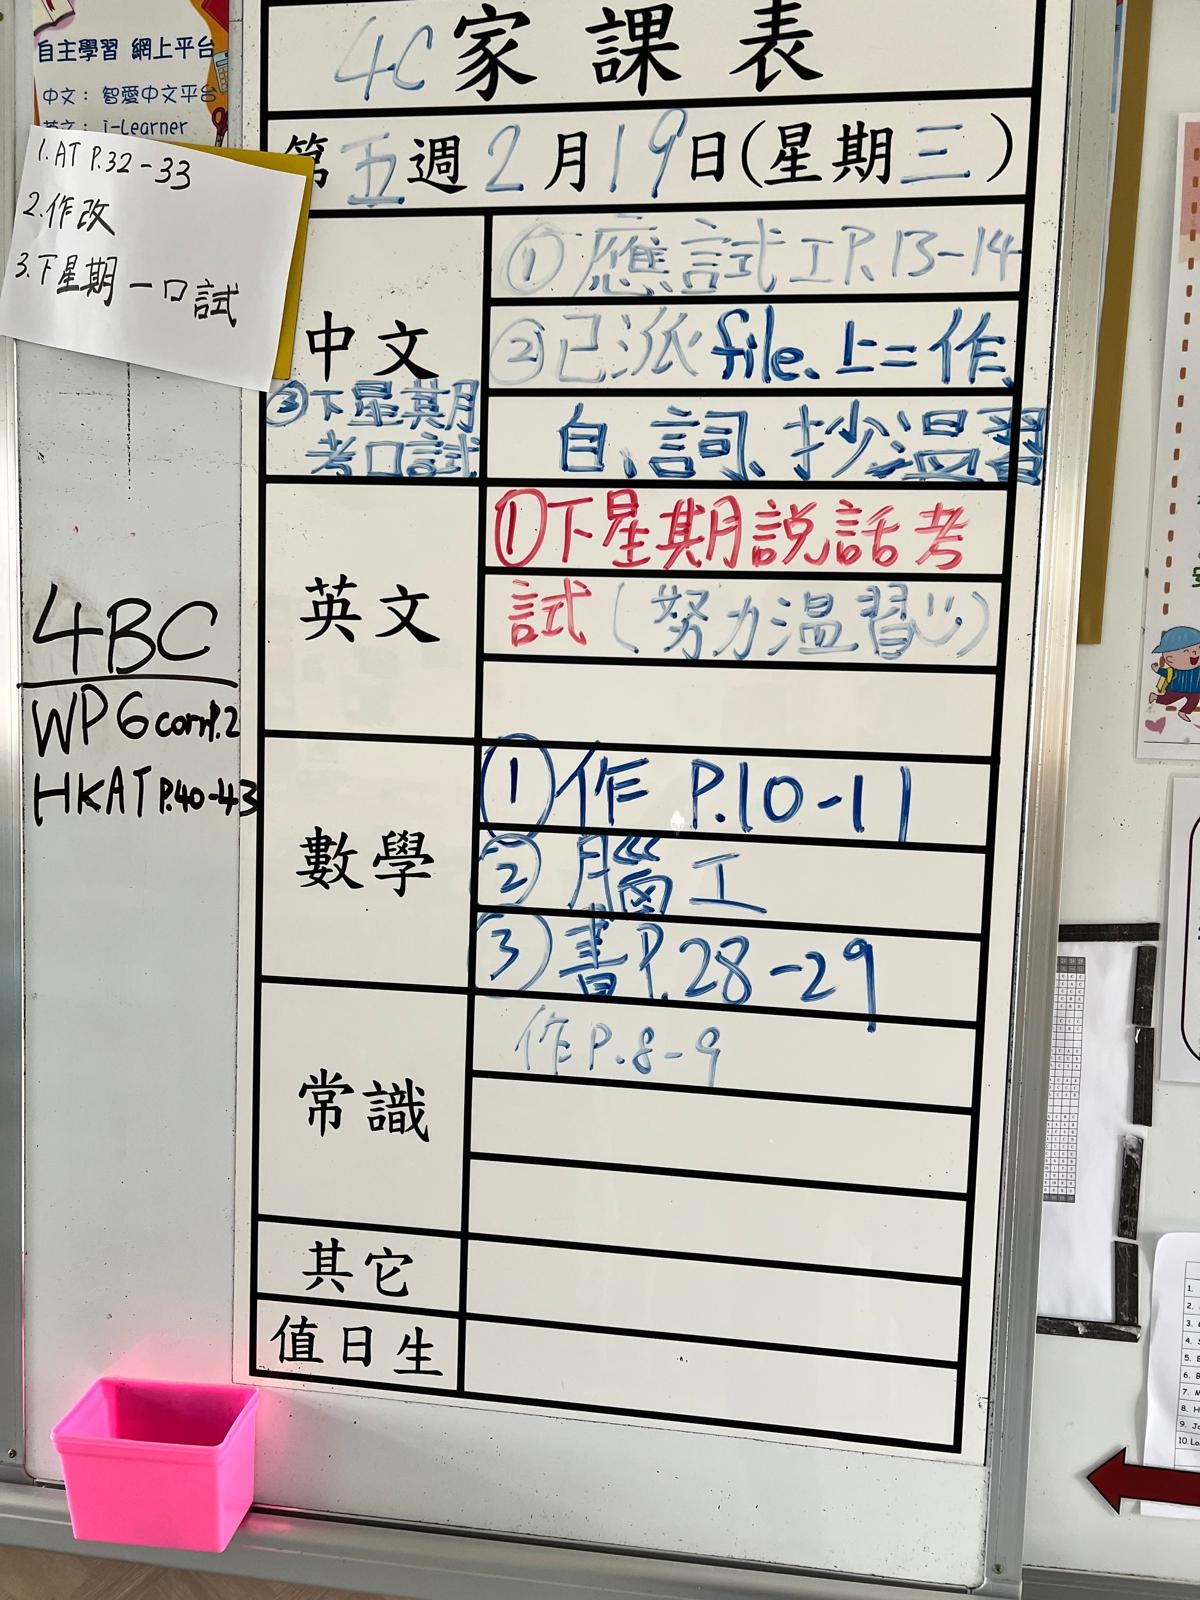 自主學習 網上平台
中文: 智愛中文平台
英文: i-Learner
1. AT P.32-33
2. 作改
3. 下星期一口試
4C家課表
第五週2月19日(星期三)
中文
①應試工P.13-14
②已派file、上=作、
自、詞、抄溫習
③下星期
考口試
英文
①下星期説話考
試(努力溫習)
數學
①作 P.10-11
②腦工
③書P.28-29
常識
作P.8-9
其它
值日生
4BC
WP6 corr P.2
HKAT P.40-43